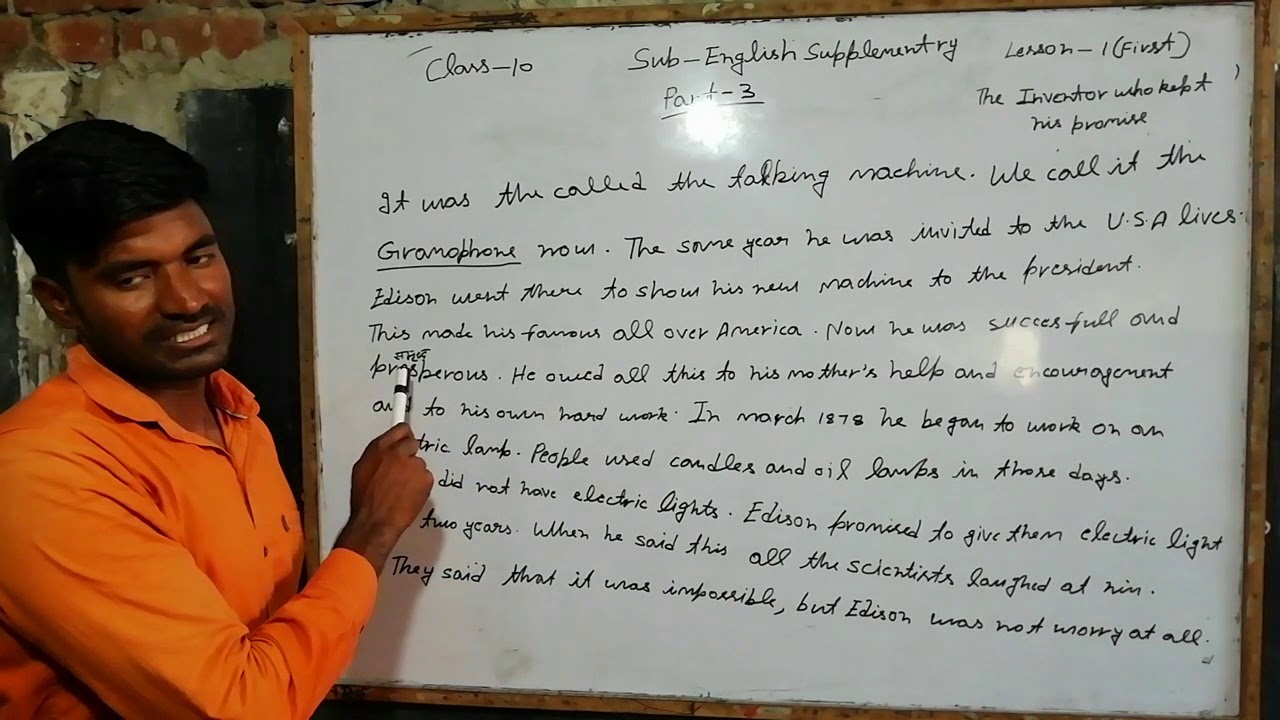 Class-10
Sub-English Supplementry
Lesson-1(First)
Part-3
The Inventor who kept
his promise
It was the called the talking machine. We call it the
Gramophone now. The same year he was invited to the U.S.A lives.
Edison went there to show his new machine to the president.
This made his famous all over America. Now he was succesfull and
समृद्ध
prosperous. He owed all this to his mother's help and encouragement
and to his own hard work. In march 1878 he began to work on an
tric lamp. People used candles and oil lamps in those days.
did not have electric lights. Edison promised to give them electric light
two years. When he said this all the scientists laughed at him.
They said that it was impossible, but Edison was not worry at all.